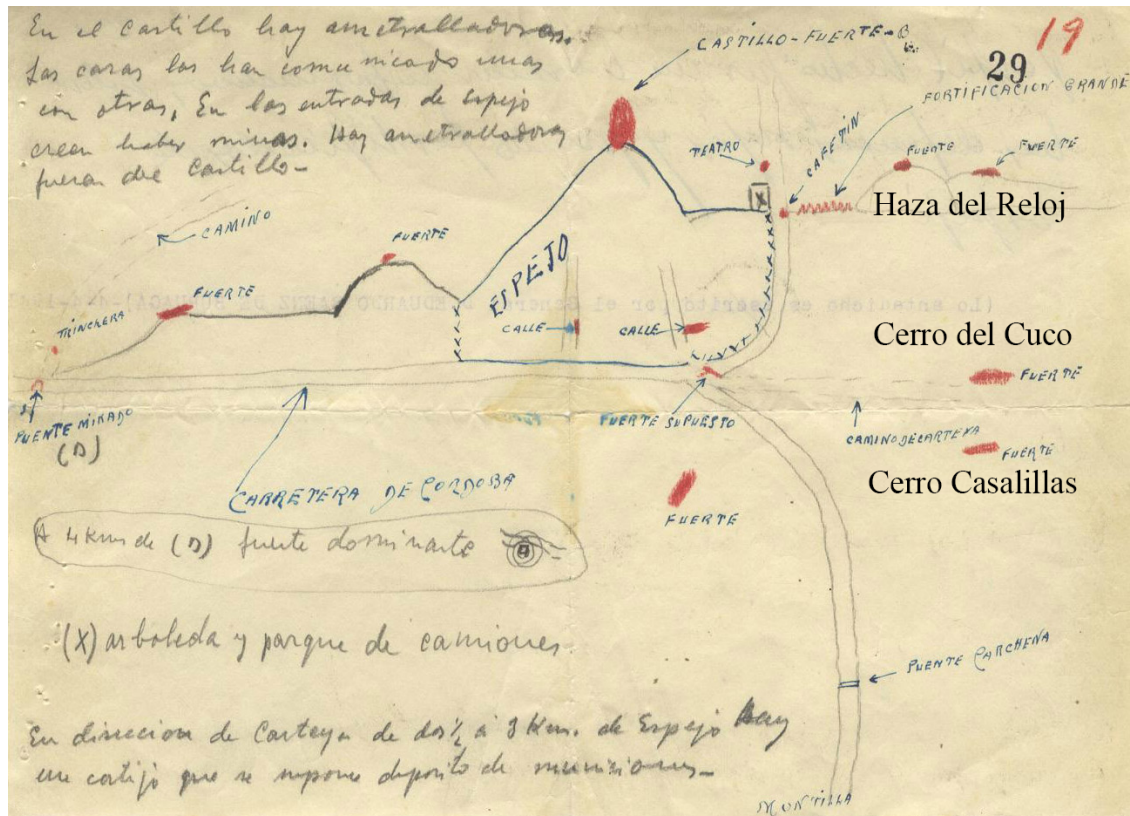 En el castillo hay ametralladoras.
Las casas las han comunicado unas
con otras. En las entradas de Espejo
creen haber minas. Hay ametralladoras
fuera del Castillo-
CASTILLO-FUERTE-B
19
29
FORTIFICACION GRANDE
TEATRO
CAFETIN
FUERTE
FUERTE
X
Haza del Reloj
CAMINO
FUERTE
FUERTE
TRINCHERA
ESPEJO
CALLE
CALLE
Cerro del Cuco
FUERTE
PUENTE MIKADO
(D)
FUERTE SUPUESTO
CAMINO DE CARTEYA
FUERTE
CARRETERA DE CORDOBA
Cerro Casalillas
FUERTE
A 4 Kms de (D) fuerte dominante
(X) arboleda y parque de camiones
PUENTE CARCHENA
En direccion de Carteya de dos ½ a 3 Km. de Espejo hay
un cortijo que se supone deposito de municiones-
MONTILLA